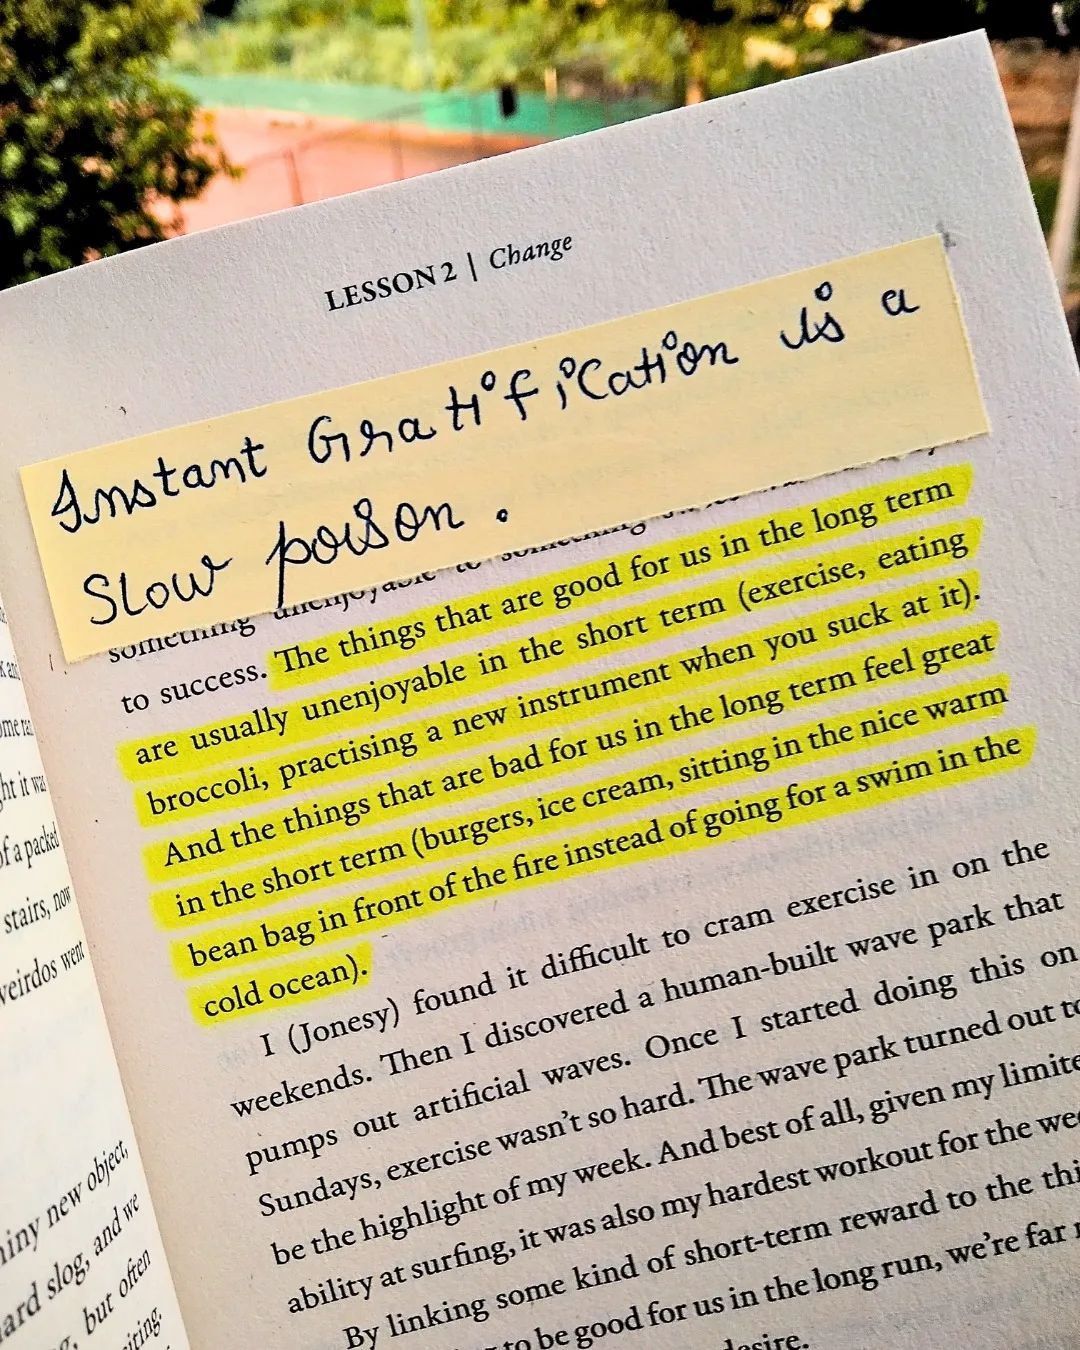 LESSON 2 | Change
Instant Gratification is a
Slow poison.
something unenjoyable to something
to success. The things that are good for us in the long term
are usually unenjoyable in the short term (exercise, eating
broccoli, practising a new instrument when you suck at it).
And the things that are bad for us in the long term feel great
in the short term (burgers, ice cream, sitting in the nice warm
bean bag in front of the fire instead of going for a swim in the
cold ocean).
I (Jonesy) found it difficult to cram exercise in on the
weekends. Then I discovered a human-built wave park that
pumps out artificial waves. Once I started doing this on
Sundays, exercise wasn't so hard. The wave park turned out to
be the highlight of my week. And best of all, given my limite
ability at surfing, it was also my hardest workout for the wee
By linking some kind of short-term reward to the thi
to be good for us in the long run, we're far
desire.
ome
ght it was
of a packed
stairs, now
weirdos went
hiny new object,
hard slog, and we
but often
citing.